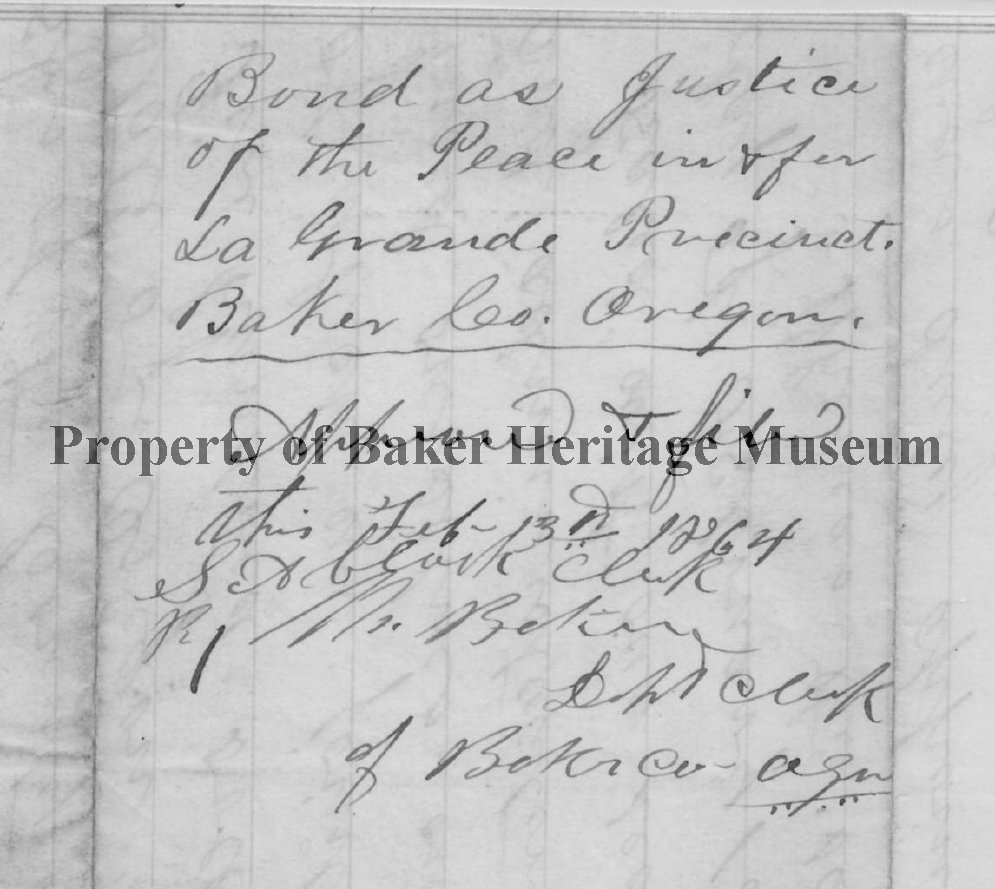 Bond as Justice
of the Peace in & for
La Grande Precinct.
Baker Co. Oregon.
Approved & filed
Property of Baker Heritage Museum
this Feb 13th 1864
S A Clark Clerk
By M. Baker
Dept Clerk
of Baker co- Ogn